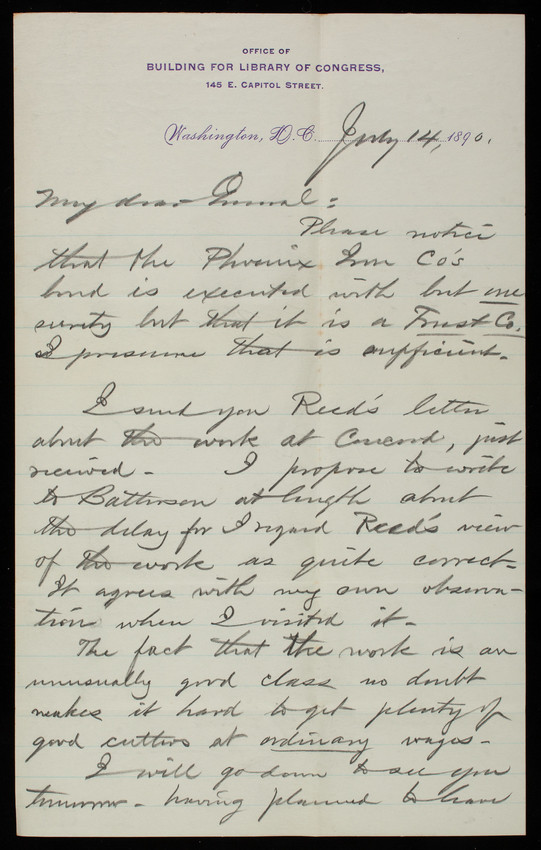 OFFICE OF
BUILDING FOR LIBRARY OF CONGRESS,
145 E. CAPITOL STREET.
Washington, D.C. July 14, 1890.
My dear General:
Please notice
that the Phoenix Iron Co's
bond is executed with but one
surety but that it is a Trust Co.
I presume that is sufficient.
I send you Reed's letter
about the work at Concord, just
received - I propose to write
to Batterson at length about
the delay for I regard Reed's view
of the work as quite correct-
It agrees with my own observa-
tion when I visited it-
The fact that the work is an
unusually good class no doubt
makes it hard to get plenty of
good cutters at ordinary wages-
I will go down to see you
tomorrow - having planned to have